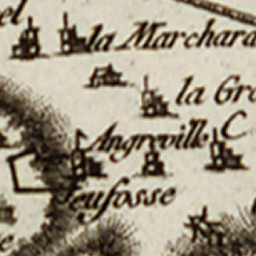 el
la Marchara
la Gro
Angreville C
Jeufosse
e